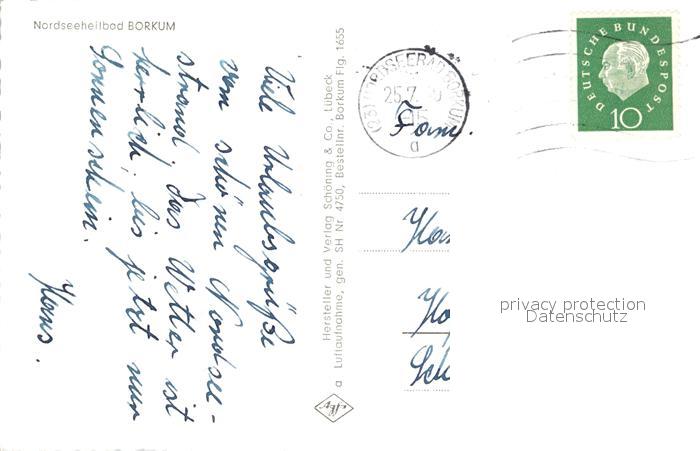 Nordseeheilbad BORKUM
Viele Urlaubsgrüße
vom schönen Nordsee-
strand. Das Wetter ist
herrlich, bis jetzt nur
Sonnenschein.
Hans.
Hersteller und Verlag Schöning & Co., Lübeck
a Luftaufnahme, gen. SH Nr 4750, Bestellnr. Borkum Flg. 1655
Agfa
NORDSEEBAD BORKUM
25.7.
a
DEUTSCHE BUNDESPOST
10
Fam.
privacy protection
Datenschutz